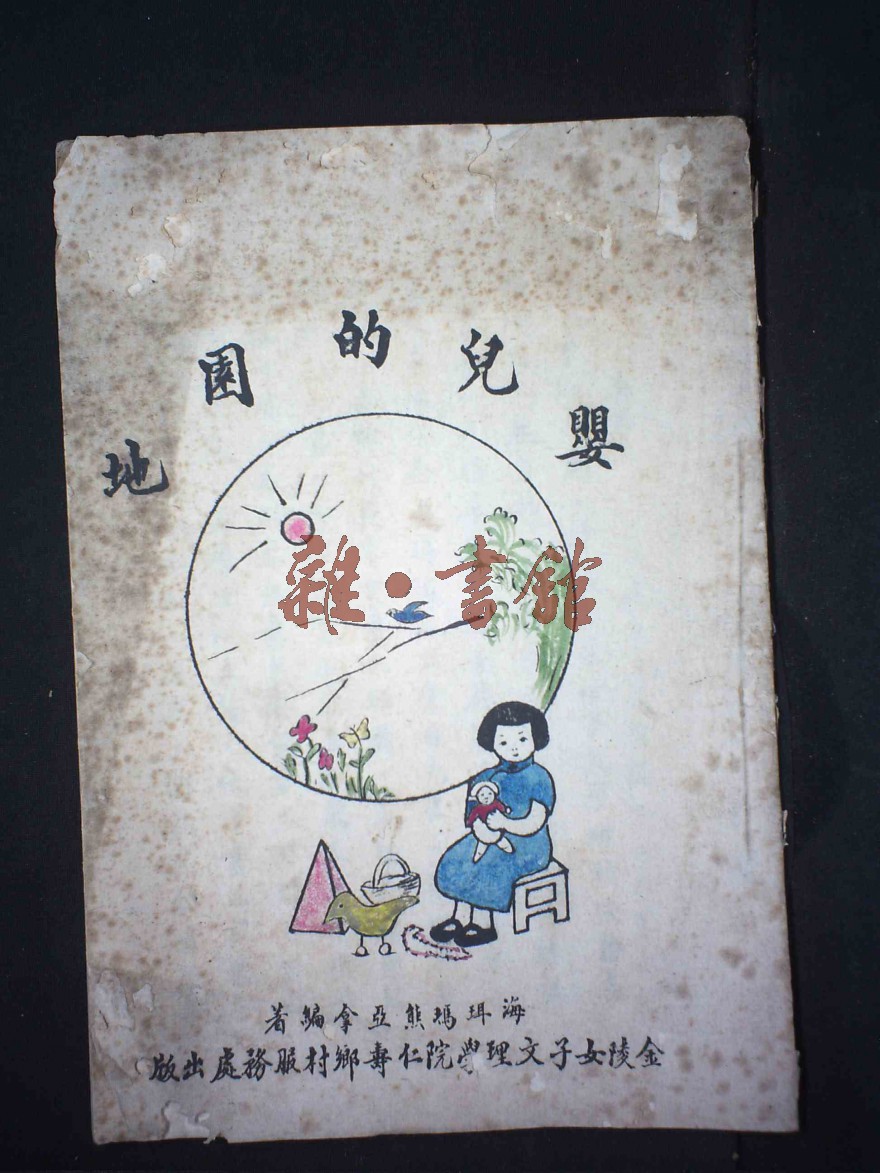 嬰兒的園地
雜·書館
海珥瑪熊亞拿編著
金陵女子文理學院仁壽鄉村服務處出版